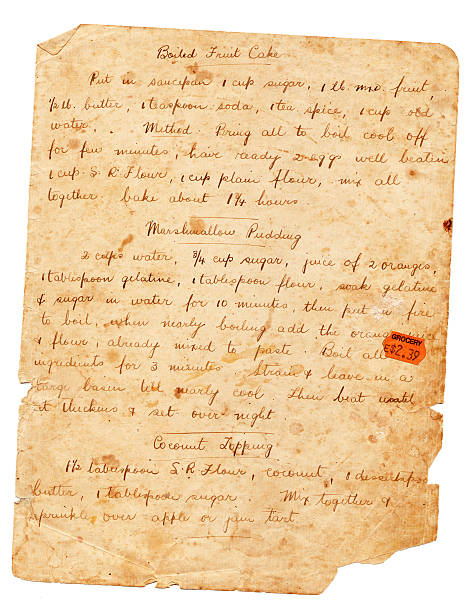 Boiled Fruit Cake
Put in saucepan 1 cup sugar, 1 lb. mxd fruit,
½ lb. butter, 1 teaspoon soda, 1 tea spice, 1 cup old
water. Method. Bring all to boil cool off
for few minutes, have ready 2 eggs well beaten
1 cup S. R. Flour, 1 cup plain flour, mix all
together bake about 1¼ hours
Marshmallow Pudding
2 cups water, ¾ cup sugar, juice of 2 oranges,
1 tablespoon gelatine, 1 tablespoon flour, soak gelatine
& sugar in water for 10 minutes, then put on fire
to boil, when nearly boiling add the orange
& flour, already mixed to paste. Boil all
ingredients for 3 minutes. Strain & leave in a
large basin till nearly cool Then beat until
it thickens & set over night
GROCERY
E$2.39
Coconut Topping
1½ tablespoon S. R. Flour, coconut, 1 dessertspoo
butter, 1 tablespoon sugar. Mix together &
sprinkle over apple or jam tart